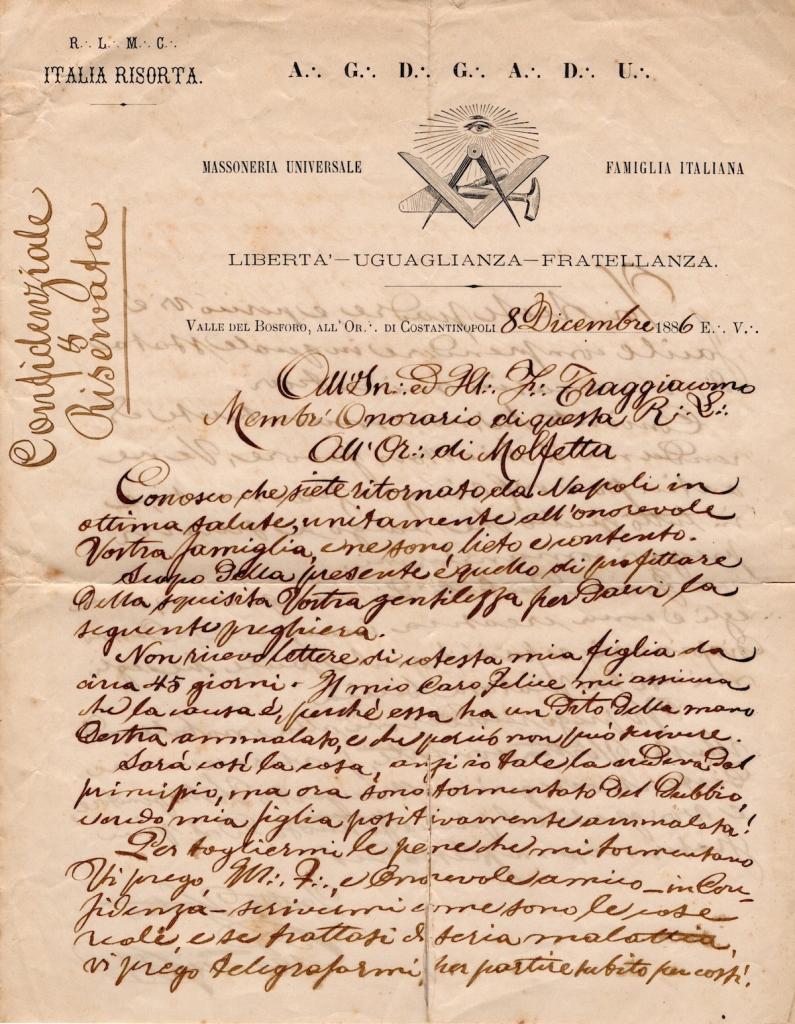 R∴ L∴ M∴ C∴
ITALIA RISORTA.
A∴ G∴ D∴ G∴ A∴ D∴ U∴
MASSONERIA UNIVERSALE
FAMIGLIA ITALIANA
LIBERTA'—UGUAGLIANZA—FRATELLANZA.
VALLE DEL BOSFORO, ALL'OR∴ DI COSTANTINOPOLI 8 Dicembre 1886 E∴ V∴
Confidenziale
e
Riservata
All'In∴ ed Ill∴ F∴ Traggiacomo
Membr' Onorario di questa R∴ L∴
All'Or∴ di Molfetta
Conosco che siete ritornato da Napoli in
ottima salute, unitamente all'onorevole
Vostra famiglia, e ne sono lieto e contento.
Scopo della presente è quello di profittare
della squisita Vostra gentilezza per darvi la
seguente preghiera.
Non ricevo lettere di cotesta mia figlia da
circa 45 giorni. Il mio caro Felice mi assicura
che la causa è, perchè essa ha un dito della mano
destra ammalato, e che perciò non può scrivere.
Sarà così la cosa, anzi io tale la credeva dal
principio, ma ora sono tormentato del dubbio,
credo mia figlia positivamente ammalata!
Per togliermi le pene che mi tormentano
Vi prego, Ill∴ F∴, e Onorevole amico — in Con-
fidenza — scrivermi come sono le cose
reali, e se trattasi di seria malattia,
vi prego telegrafarmi, per partire subito per costì.